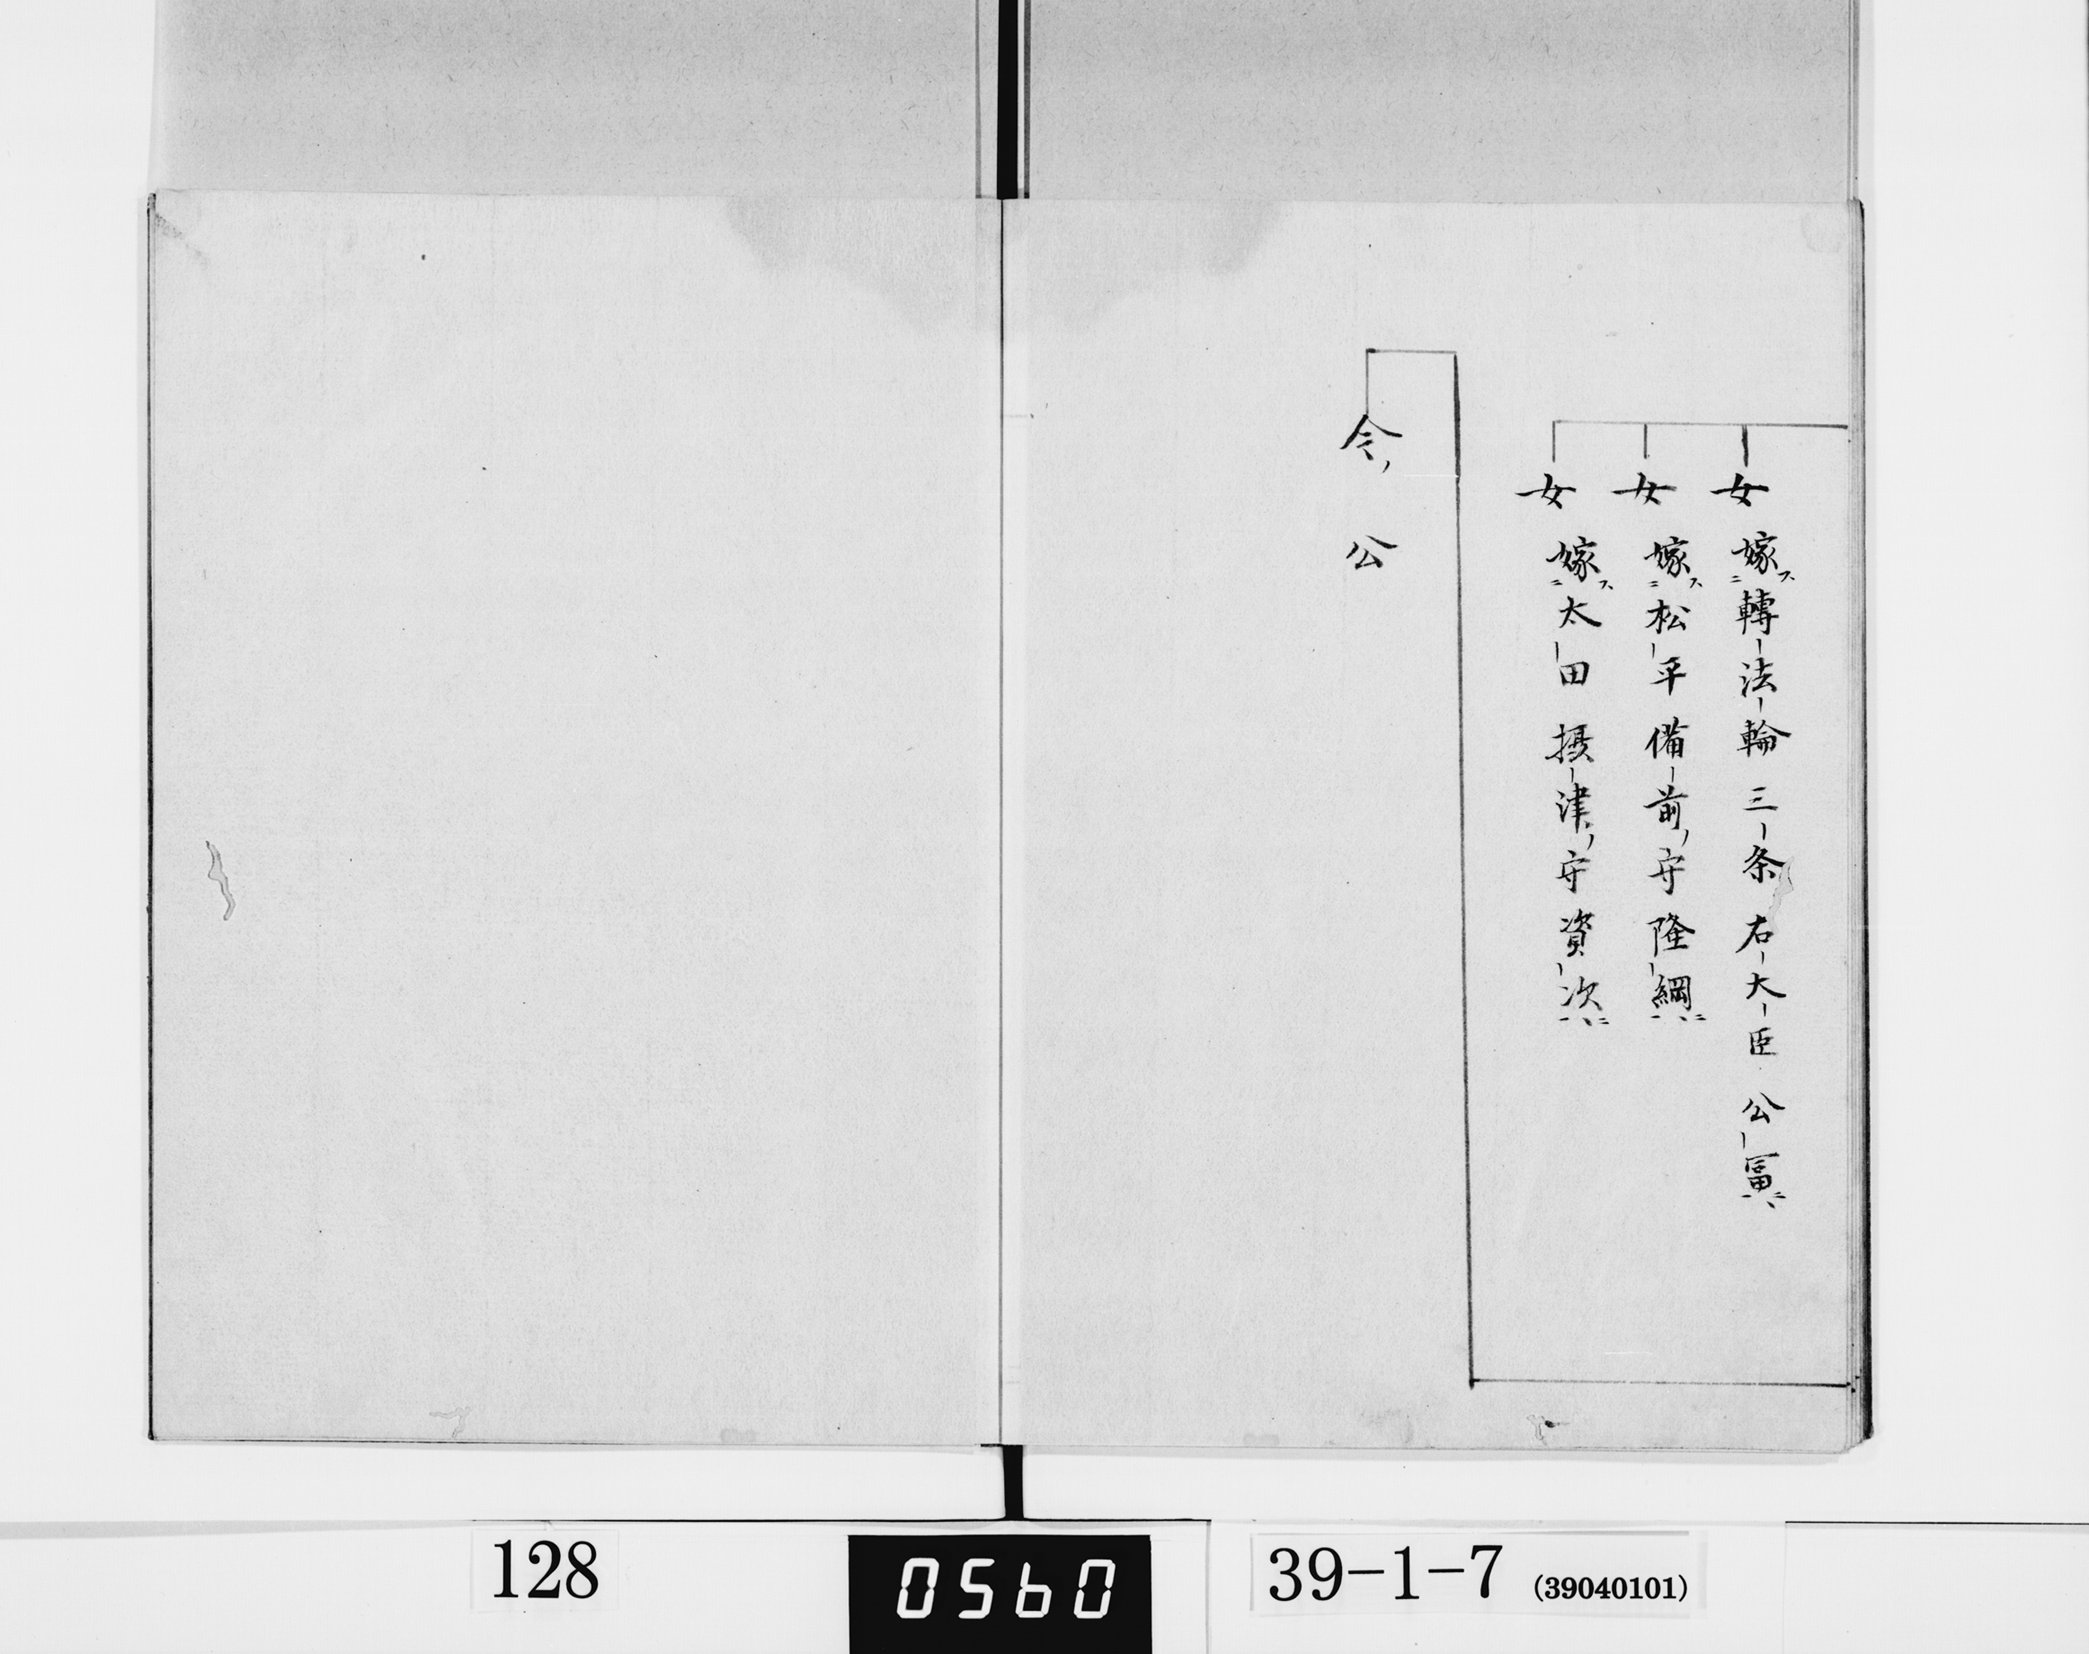 女 嫁ニス轉法輪三条右大臣公冨
女 嫁ニス松平備前守隆綱
女 嫁ニス太田摂津守資次
令公
128
0560
39-1-7 (39040101)